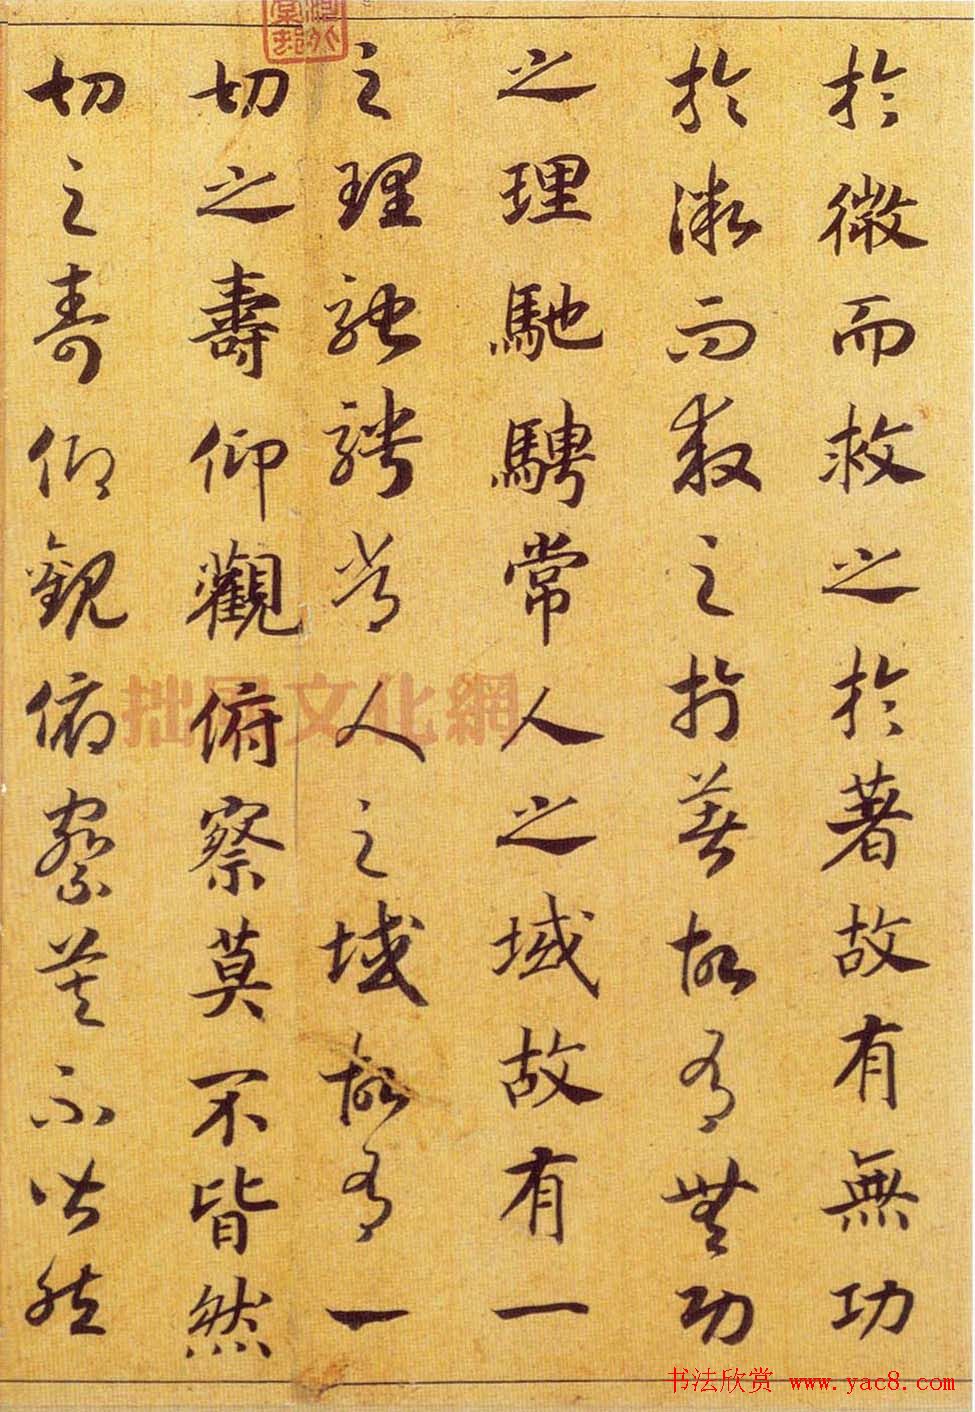 於微而救之於著故有無功
於微而救之於著故有無功
之理馳騁常人之域故有一
之理馳騁常人之域故有一
切之壽仰觀俯察莫不皆然
切之壽仰觀俯察莫不皆然
拙風文化網
书法欣赏 www.yac8.com